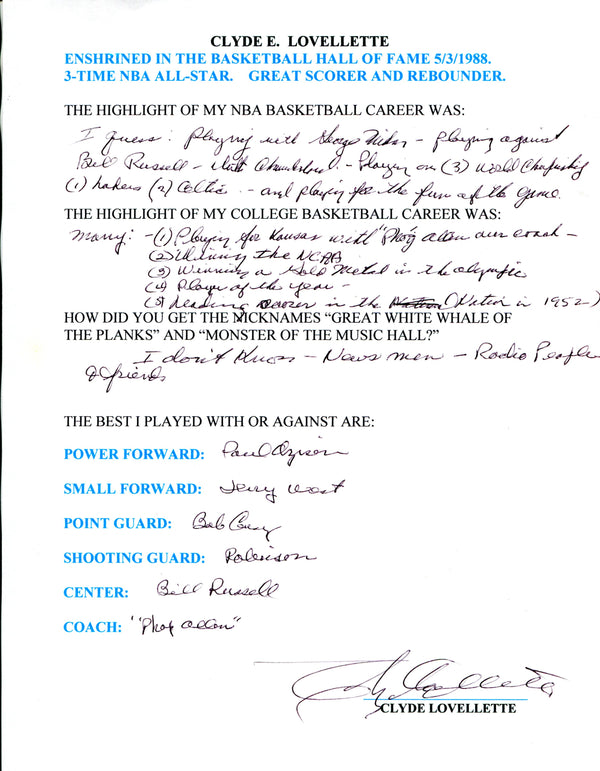 CLYDE E. LOVELLETTE
ENSHRINED IN THE BASKETBALL HALL OF FAME 5/3/1988.
3-TIME NBA ALL-STAR. GREAT SCORER AND REBOUNDER.
THE HIGHLIGHT OF MY NBA BASKETBALL CAREER WAS:
I guess: Playing with George Mikan - playing against
Bill Russell - Wilt - Player on (3) World Championship
(1) Lakers (2) Celtics - and playing for the fun of the game.
THE HIGHLIGHT OF MY COLLEGE BASKETBALL CAREER WAS:
many: - (1) Player for Kansas with "Phog allen our coach -
(2) Winning the NCAA
(3) Winning a Gold Metal in the olympic
(4) Player of the year -
(5) Leading scorer in the Nation (Nation in 1952)
HOW DID YOU GET THE NICKNAMES "GREAT WHITE WHALE OF
THE PLANKS" AND "MONSTER OF THE MUSIC HALL?"
I don't Know - News men - Radio People
friends
THE BEST I PLAYED WITH OR AGAINST ARE:
POWER FORWARD: Paul
SMALL FORWARD: Jerry West
POINT GUARD: Bob Cousy
SHOOTING GUARD: Robinson
CENTER: Bill Russell
COACH: "Phog allen"
Clyde Lovellette
CLYDE LOVELLETTE